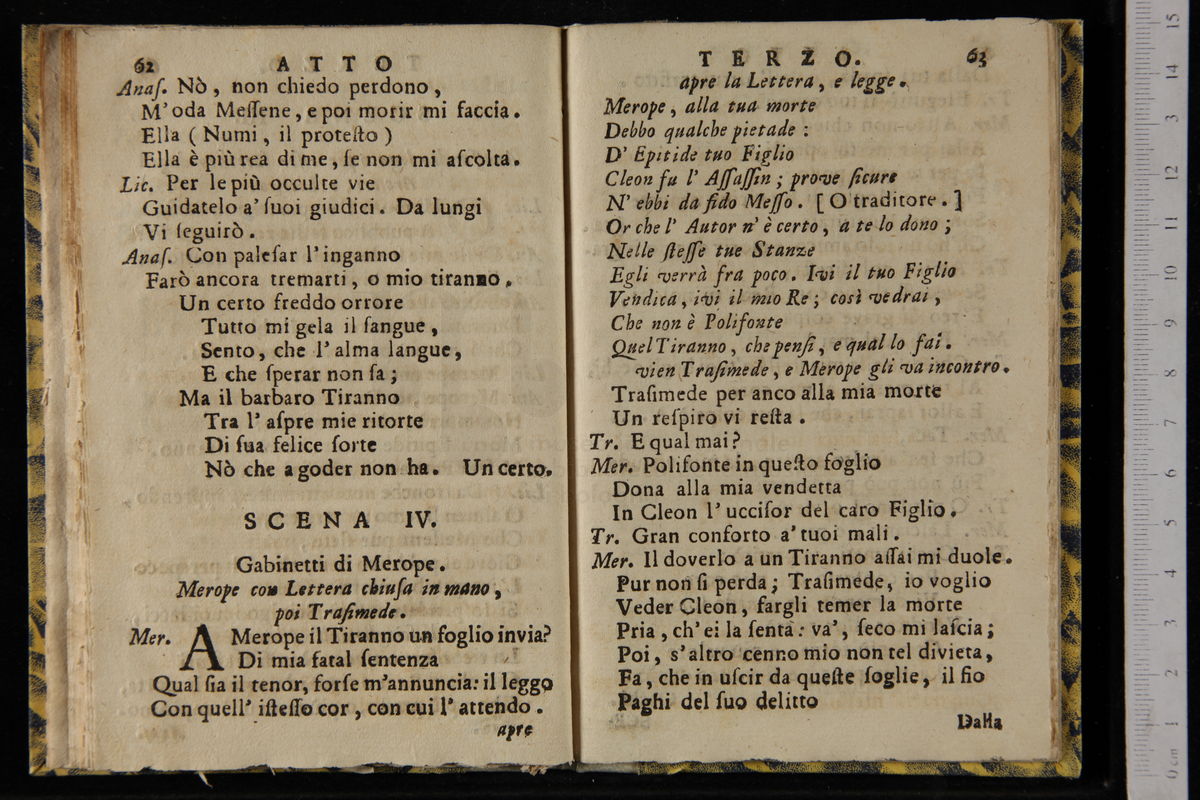 62 ATTO
Anaſ. Nò, non chiedo perdono,
M'oda Meſſene, e poi morir mi faccia.
Ella (Numi, il proteſto)
Ella è più rea di me, ſe non mi aſcolta.
Lic. Per le più occulte vie
Guidatelo a' ſuoi giudici. Da lungi
Vi ſeguirò.
Anaſ. Con paleſar l'inganno
Farò ancora tremarti, o mio tiranno.
Un certo freddo orrore
Tutto mi gela il ſangue,
Sento, che l'alma langue,
E che ſperar non ſa;
Ma il barbaro Tiranno
Tra l'aſpre mie ritorte
Di ſua felice ſorte
Nò che a goder non ha. Un certo.
SCENA IV.
Gabinetti di Merope.
Merope con Lettera chiuſa in mano,
poi Traſimede.
Mer. A Merope il Tiranno un foglio invia?
Di mia fatal ſentenza
Qual ſia il tenor, forſe m'annuncia: il leggo
Con quell' iſteſſo cor, con cui l'attendo.
apre
TERZO. 63
apre la Lettera, e legge.
Merope, alla tua morte
Debbo qualche pietade:
D' Epitide tuo Figlio
Cleon fu l' Aſſaſſin; prove ſicure
N' ebbi da fido Meſſo. [O traditore.]
Or che l' Autor n' è certo, a te lo dono;
Nelle ſteſſe tue Stanze
Egli verrà fra poco. Ivi il tuo Figlio
Vendica, ivi il mio Re; così vedrai,
Che non è Polifonte
Quel Tiranno, che penſi, e qual lo fai.
vien Traſimede, e Merope gli va incontro.
Traſimede per anco alla mia morte
Un reſpiro vi reſta.
Tr. E qual mai?
Mer. Polifonte in queſto foglio
Dona alla mia vendetta
In Cleon l'ucciſor del caro Figlio.
Tr. Gran conforto a' tuoi mali.
Mer. Il doverlo a un Tiranno aſſai mi duole.
Pur non ſi perda; Traſimede, io voglio
Veder Cleon, fargli temer la morte
Pria, ch' ei la ſenta: va', ſeco mi laſcia;
Poi, s'altro cenno mio non tel divieta,
Fa, che in uſcir da queſte ſoglie, il fio
Paghi del ſuo delitto
Dalla
15
14
13
12
11
10
9
8
7
6
5
4
3
2
1
0 cm